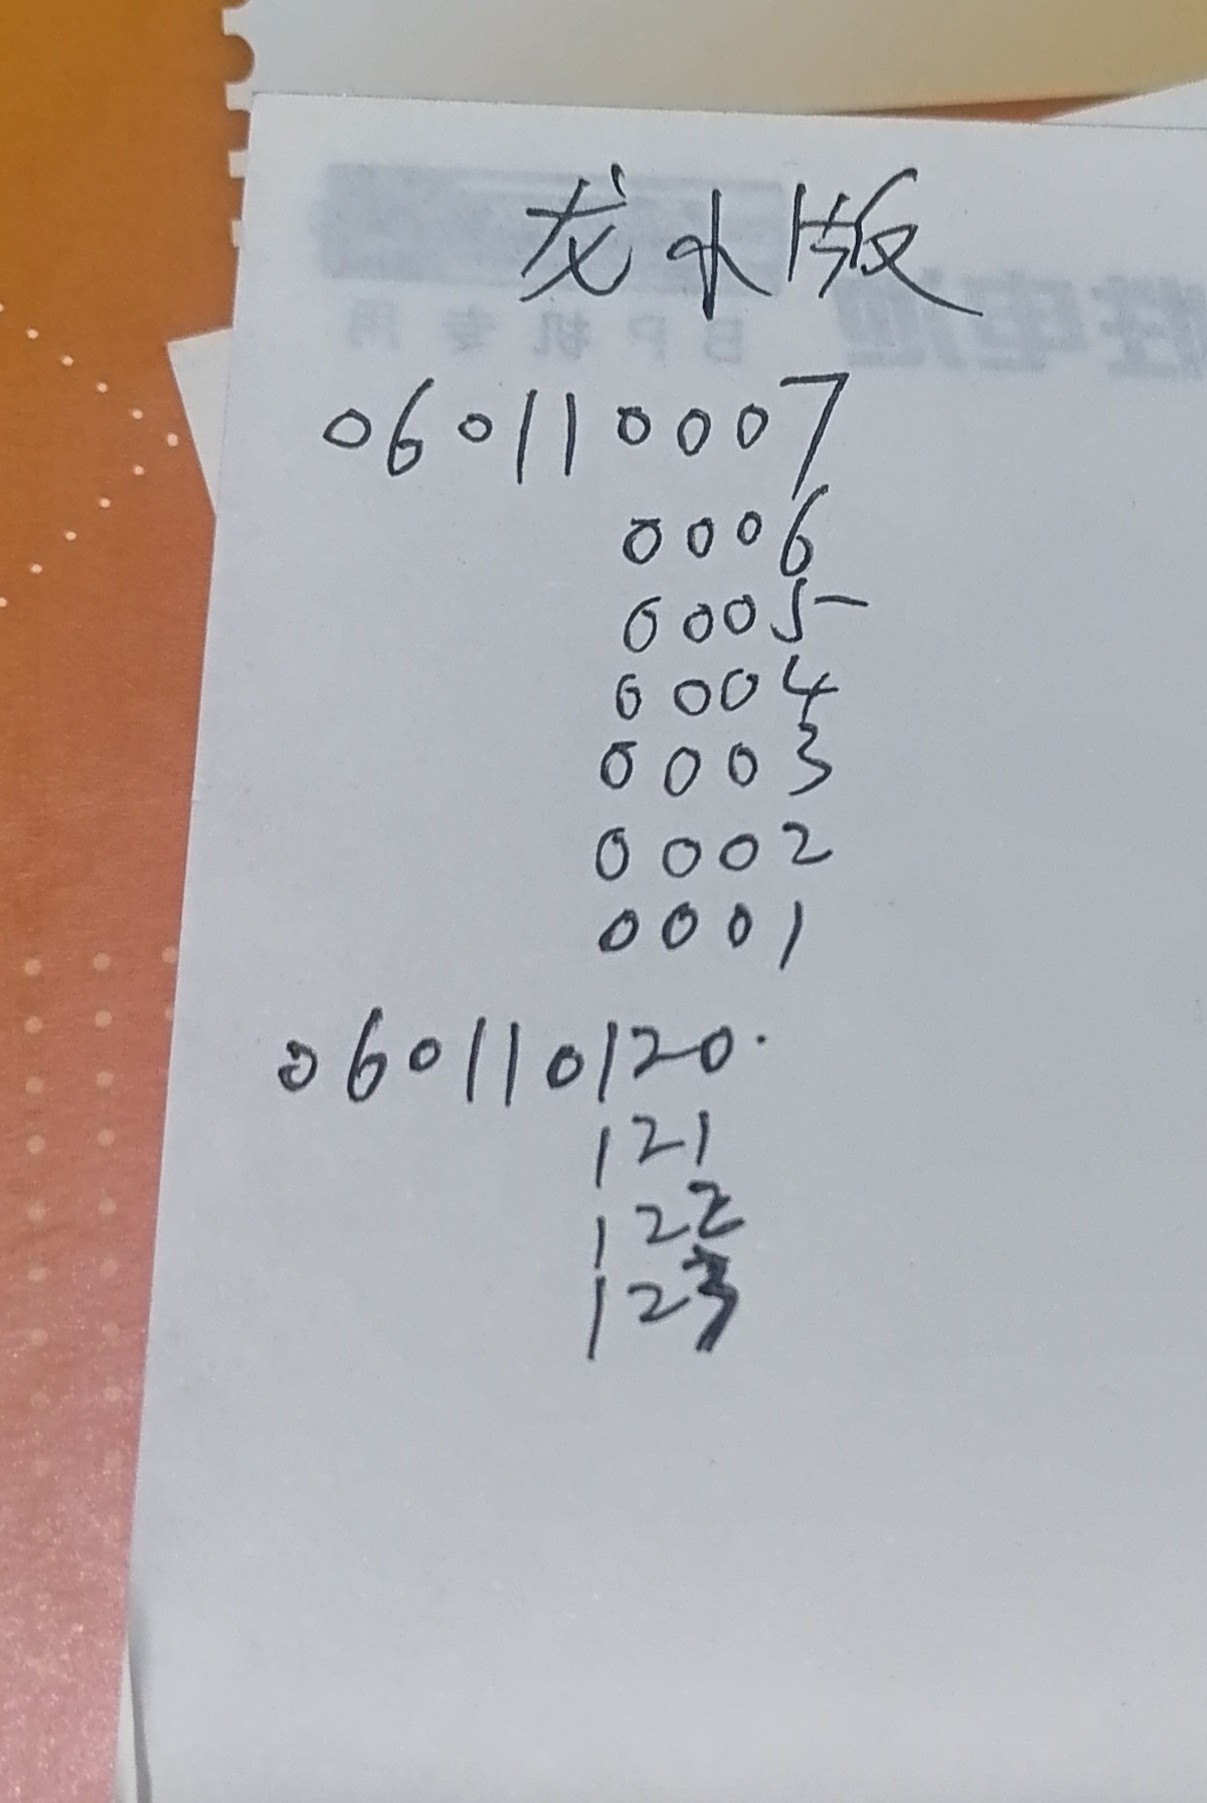 龙水版
060110007
0006
0005
0004
0003
0002
0001
060110120.
121
122
123